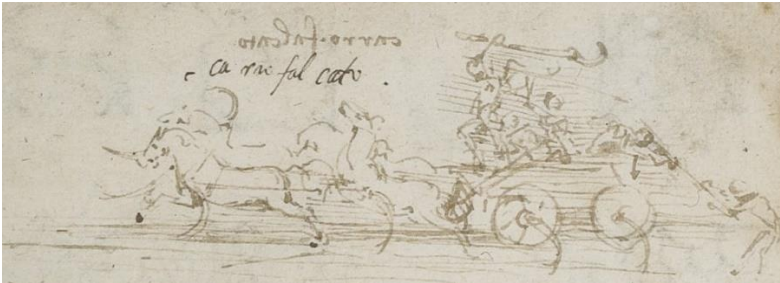 carro falcato
. carro falcato .